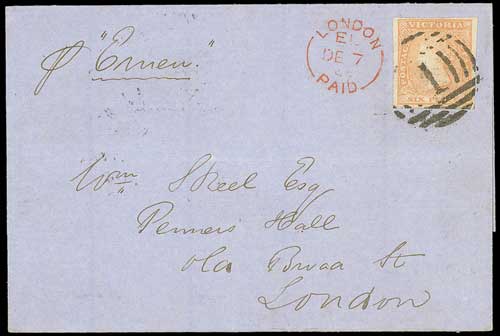 p "Emeu"
LONDON
EL
DE 7
PAID
VICTORIA
POSTAGE
SIX
1
Wm Steel Esq
Penners Hall
Old Broad St
London